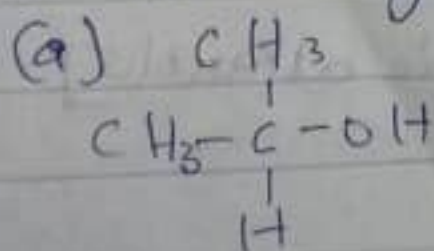 (a) CH3
|
CH3-C-OH
|
H